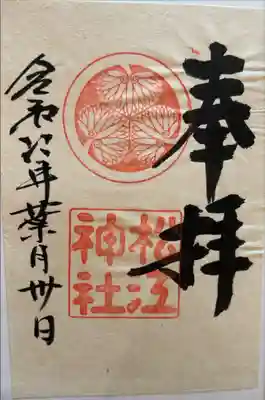 奉拝
松江
神社
令和六年葉月卅日